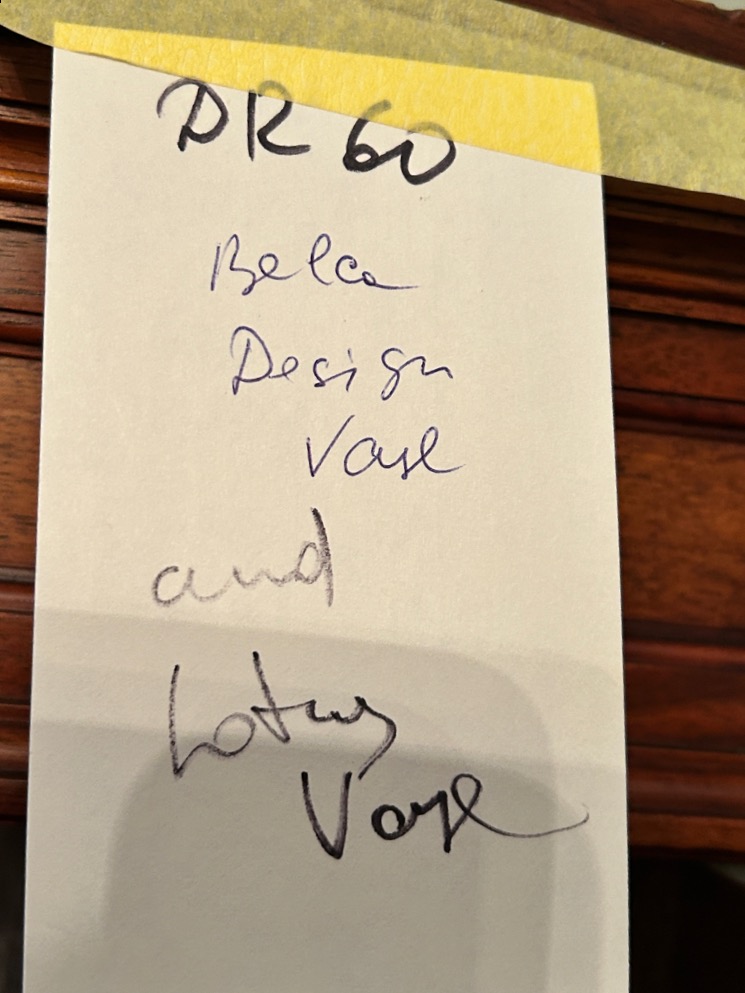 DR 60
Belca
Design
Vase
and
Lotus
Vase